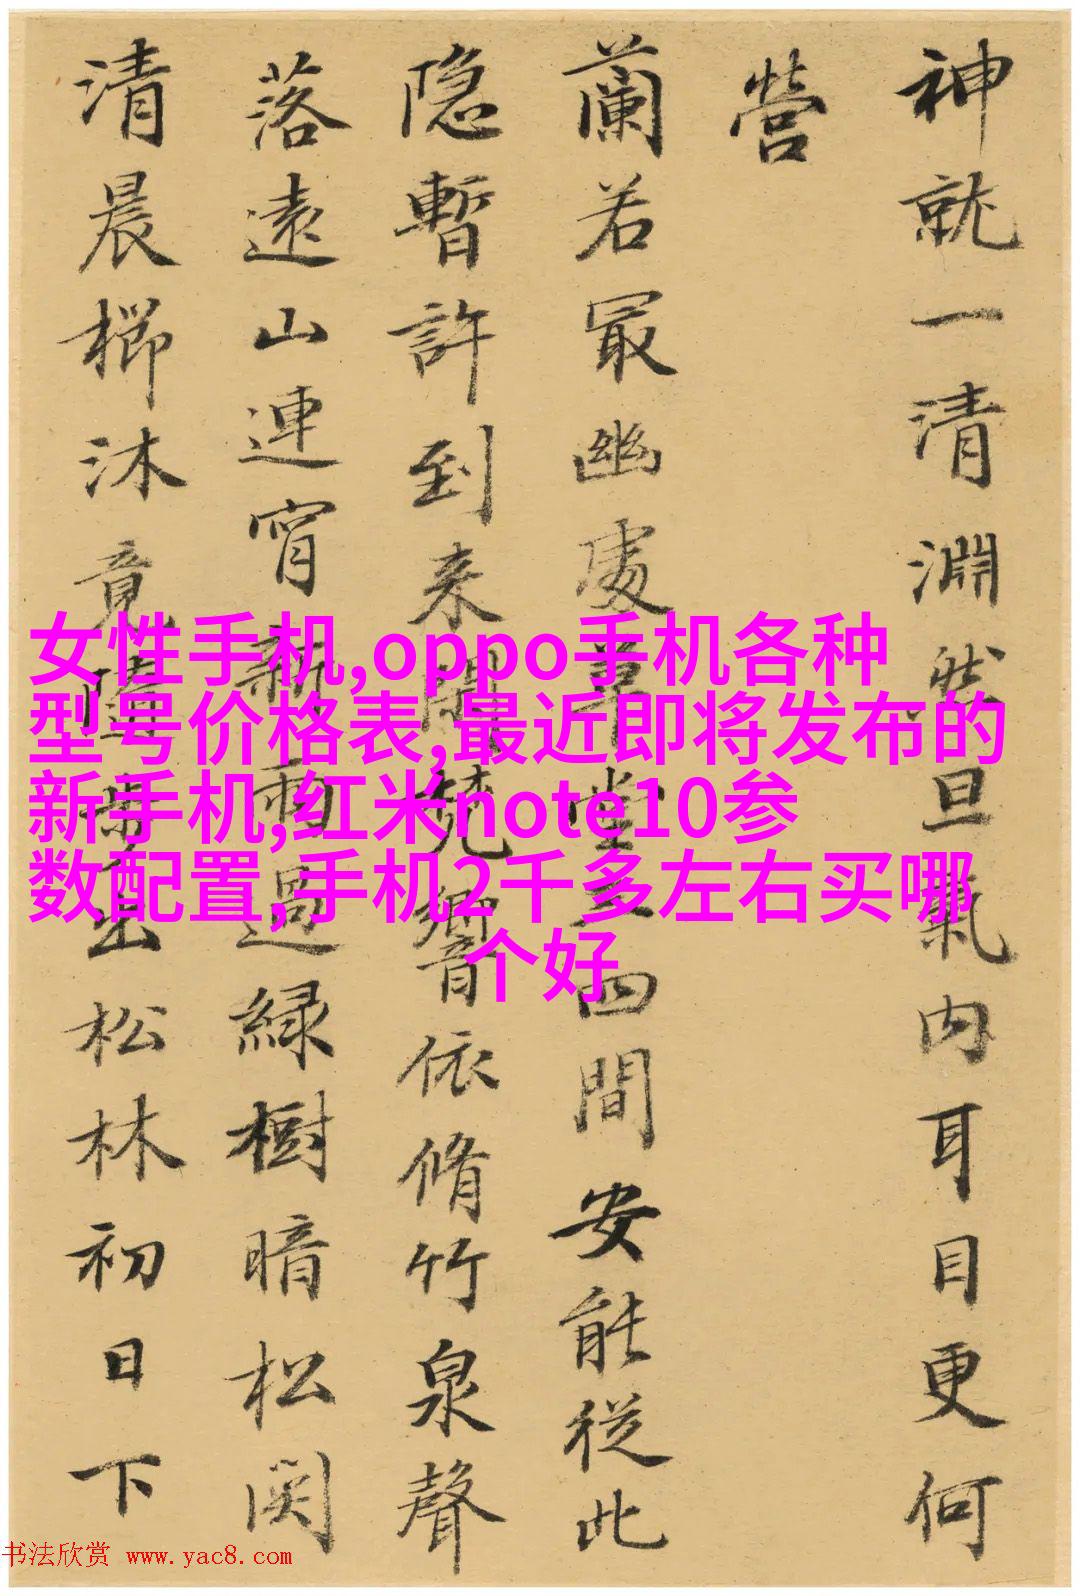 神就一清淵然旦氣内耳目更何
營
蘭若冣幽處草堂三四間安能從此
隐暫許到来閑梵響依脩竹泉聲
落遠山連宵新雨過緑樹暗松関
清晨櫛沐竟隨步出松林初日下
女性手机,oppo手机各种
型号价格表,最近即将发布的
新手机,红米note10参
数配置,手机2千多左右买哪
个好
书法欣赏 www.yac8.com